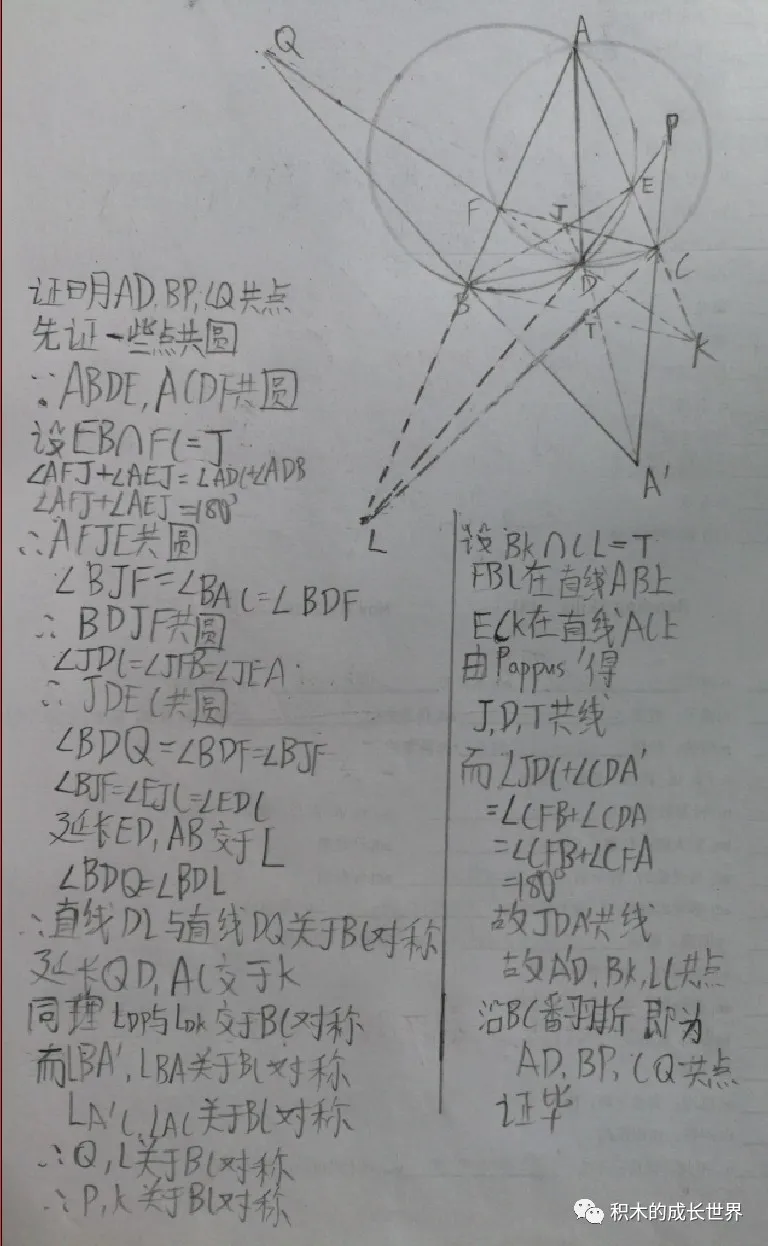 Q
A
P
F
J
E
B
D
C
T
K
A'
L
证明AD,BP,CQ共点
先证一些点共圆
∵ABDE,ACDF共圆
设EB∩FC=J
∠AFJ+∠AEJ=∠ADC+∠ADB
∠AFJ+∠AEJ=180°
∴AFJE共圆
∠BJF=∠BAC=∠BDF
∴BDJF共圆
∠JDC=∠JFB=∠JEA
∴JDEC共圆
∠BDQ=∠BDF=∠BJF
∠BJF=∠EJC=∠EDC
延长ED,AB交于L
∠BDQ=∠BDL
∴直线DL与直线DQ关于BC对称
延长QD,AC交于K
同理LDP与LDK交于BC对称
而LBA',LBA关于BC对称
LA'C,LAC关于BC对称
∴Q,L关于BC对称
∴P,K关于BC对称
设BK∩CL=T
FBL在直线AB上
ECK在直线AC上
由Pappus'得
J,D,T共线
而∠JDC+∠CDA'
=∠CFB+∠CDA
=∠CFB+∠CFA
=180°
故JDA'共线
故A'D,BK,LC共点
沿BC翻折即为
AD,BP,CQ共点
证毕
积木的成长世界